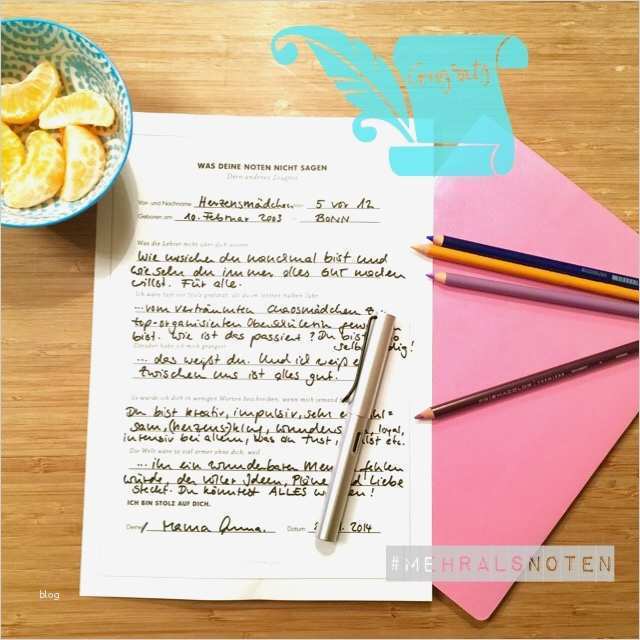 Congrats
WAS DEINE NOTEN NICHT SAGEN
Dein anderes Zeugnis
Vor- und Nachname Herzensmädchen 5 vor 12
Geboren am 10. Februar 2003 BONN
Was die Lehrer nicht über dich wissen
Wie unsicher du manchmal bist und
wie sehr du immer alles GUT machen
willst. Für alle.
Ich wäre fast vor Stolz geplatzt, als du im letzten halben Jahr
... vom verträumten Chaosmädchen z
top-organisierten Oberschülerin gew
bist. Wie ist das passiert? Du bist so
selb dig!
Geradezu habe ich mich
... das weißt du. Und ich weiß e
zwischen uns ist alles gut.
So würde ich dich in wenigen Worten beschreiben, wenn mich jemand
Du bist kreativ, impulsiv, sehr e hl=
sam, (herzens)klug, wunders loyal,
intensiv bei allem, was du tust, lst etc.
Die Welt wäre so viel ärmer ohne dich, weil
... ihr ein wunderbarer Men fehlen
würde, der voller Ideen, Pläne nd Liebe
steckt. Du könntest ALLES w en!
ICH BIN STOLZ AUF DICH.
Deine/ Mama Anna. Datum 2014
PRISMACOLOR
#MEHRALSNOTEN
blog